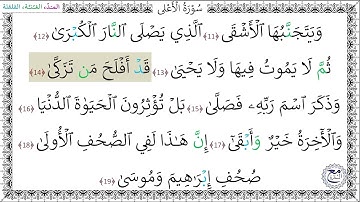 المدّ، الغنّة، القلقلة
سُورَةُ الْأَعْلَى
وَيَتَجَنَّبُهَا الْأَشْقَى ﴿١١﴾ الَّذِي يَصْلَى النَّارَ الْكُبْرَىٰ ﴿١٢﴾
ثُمَّ لَا يَمُوتُ فِيهَا وَلَا يَحْيَىٰ ﴿١٣﴾ قَدْ أَفْلَحَ مَن تَزَكَّىٰ ﴿١٤﴾
وَذَكَرَ اسْمَ رَبِّهِۦ فَصَلَّىٰ ﴿١٥﴾ بَلْ تُؤْثِرُونَ الْحَيَوٰةَ الدُّنْيَا ﴿١٦﴾
وَالْآخِرَةُ خَيْرٌ وَأَبْقَىٰٓ ﴿١٧﴾ إِنَّ هَٰذَا لَفِي الصُّحُفِ الْأُولَىٰ ﴿١٨﴾
صُحُفِ إِبْرَٰهِيمَ وَمُوسَىٰ ﴿١٩﴾